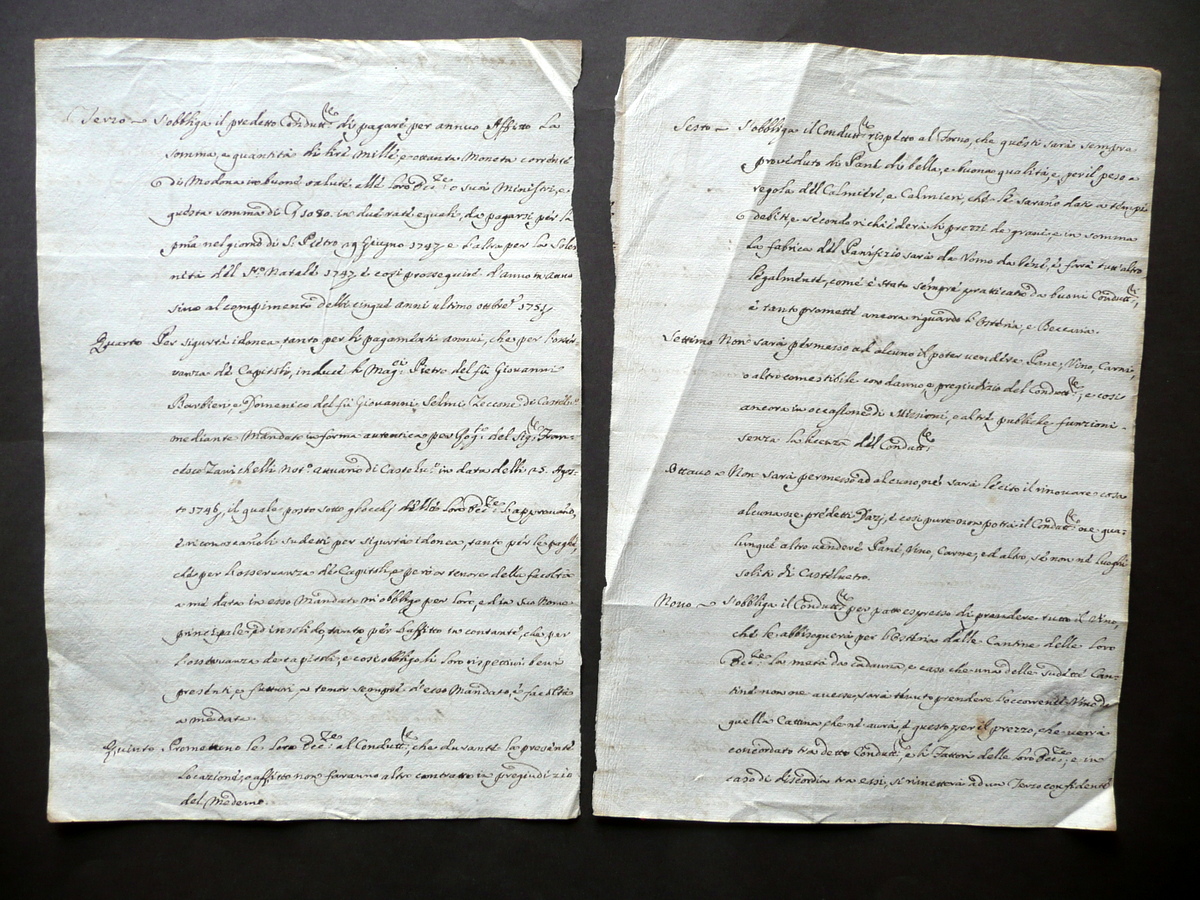 Terzo - S'obbliga il predetto Condutt.re di pagare per annuo Affitto la
somma, e quantità di lire mille, e ottanta Moneta corrente
di Modona in buone valute alle Loro Ecc.ze o suoi Ministri, e
questa somma di £ 1080. in due rate equali, da pagarsi per la
pma nel giorno di S. Pietro 29 Giugno 1747 e l'altra per la Solen
nità del S.mo Natale 1747 e così proseguire d'anno in anno
sino al compimento delli cinque anni ultimo ottbre 1751,
Quarto Per sigurtà idonea tanto per li pagamenti annui, che per l'osser-
vanza de Capitoli, induce li Mag.ci Pietro del fù Giovanni
Barbieri, e Domenico del fù Giovanni Selmi di Castelno
mediante Mandato in forma autentica per del Sig.re Fran-
cesco Zanichelli Not.o attuario di in data delli 25. Agos-
to 1746, il quale posto sotto gl'occhj delle loro Ecc.ze l'approvano,
e riconoscano li sudetti per sigurtà idonea, tanto per le paghe,
che per l'osservanza de Capitoli, e però a tenore della facoltà
a me data in esso Mandato m'obbligo per loro, ed in suo Nome
principale ed in solido tanto per l'affitto in contante, che per
l'osservanza de capitoli, e così obbligo li loro rispettivi beni
presenti, e futturi, a tenor sempre d'esso Mandato, e facoltà
a me data.
Quinto Promettono le loro Ecc.ze al Condutt.re, che durante la presente
Locazione, o affitto non faranno altro contratto in pregiudizio
del Medemo.
Sesto - S'obbliga il Condutt.re rispetto al Forno, che questi sarà sempre
proveduto di Pane di bella, e buona qualità, e per il peso a
regola del Calmiere, e Calmieri, che li sarano dati a tempi
debiti, e secondo richiederà li prezzi de grani, e in somma
la fabrica del Panifizio sarà da Uomo da bene, e farà tutt'altro
legalmente, come è stato sempre pratticato da buoni Condutt.ri,
e tanto promette ancora riguardo l'Osteria, e Beccaria.
Settimo Non sarà permesso ad alcuno il poter vendere Pane, Vino, Carne,
o altro comestibile con danno, e pregiudizio del Condutt.re, e così
ancora in occasione di Missioni, e altre publiche funzioni
senza la licenza del Condutt.re
Ottavo - Non sarà permesso ad alcuno, nè sarà lecito il rinovare cosa
alcuna ne predetti Dazj, e così pure non potrà il Condutt.re ne qua-
lunque altro vendere Pane, Vino, Carne, ed altro, se non ne luoghi
soliti di Castelvetro.
Nono - S'obbliga il Condutt.re per patto espresso di prendere tutto il Vino,
che le abbisognerà per l'osteria dalle Cantine delle Loro
Ecc.ze la metà da cadauna, e caso che una delle sudette Can-
tine non ne avesse, sarà tenuto prendere l'occorrente Vino da
quella Cantina, che ne avrà, e questo per il prezzo, che verrà
concordato tra detto Condutt.re e li Fattori delle loro Ecc.ze, e in
caso di discordia tra essi, si rimetterà ad un Terzo confidente